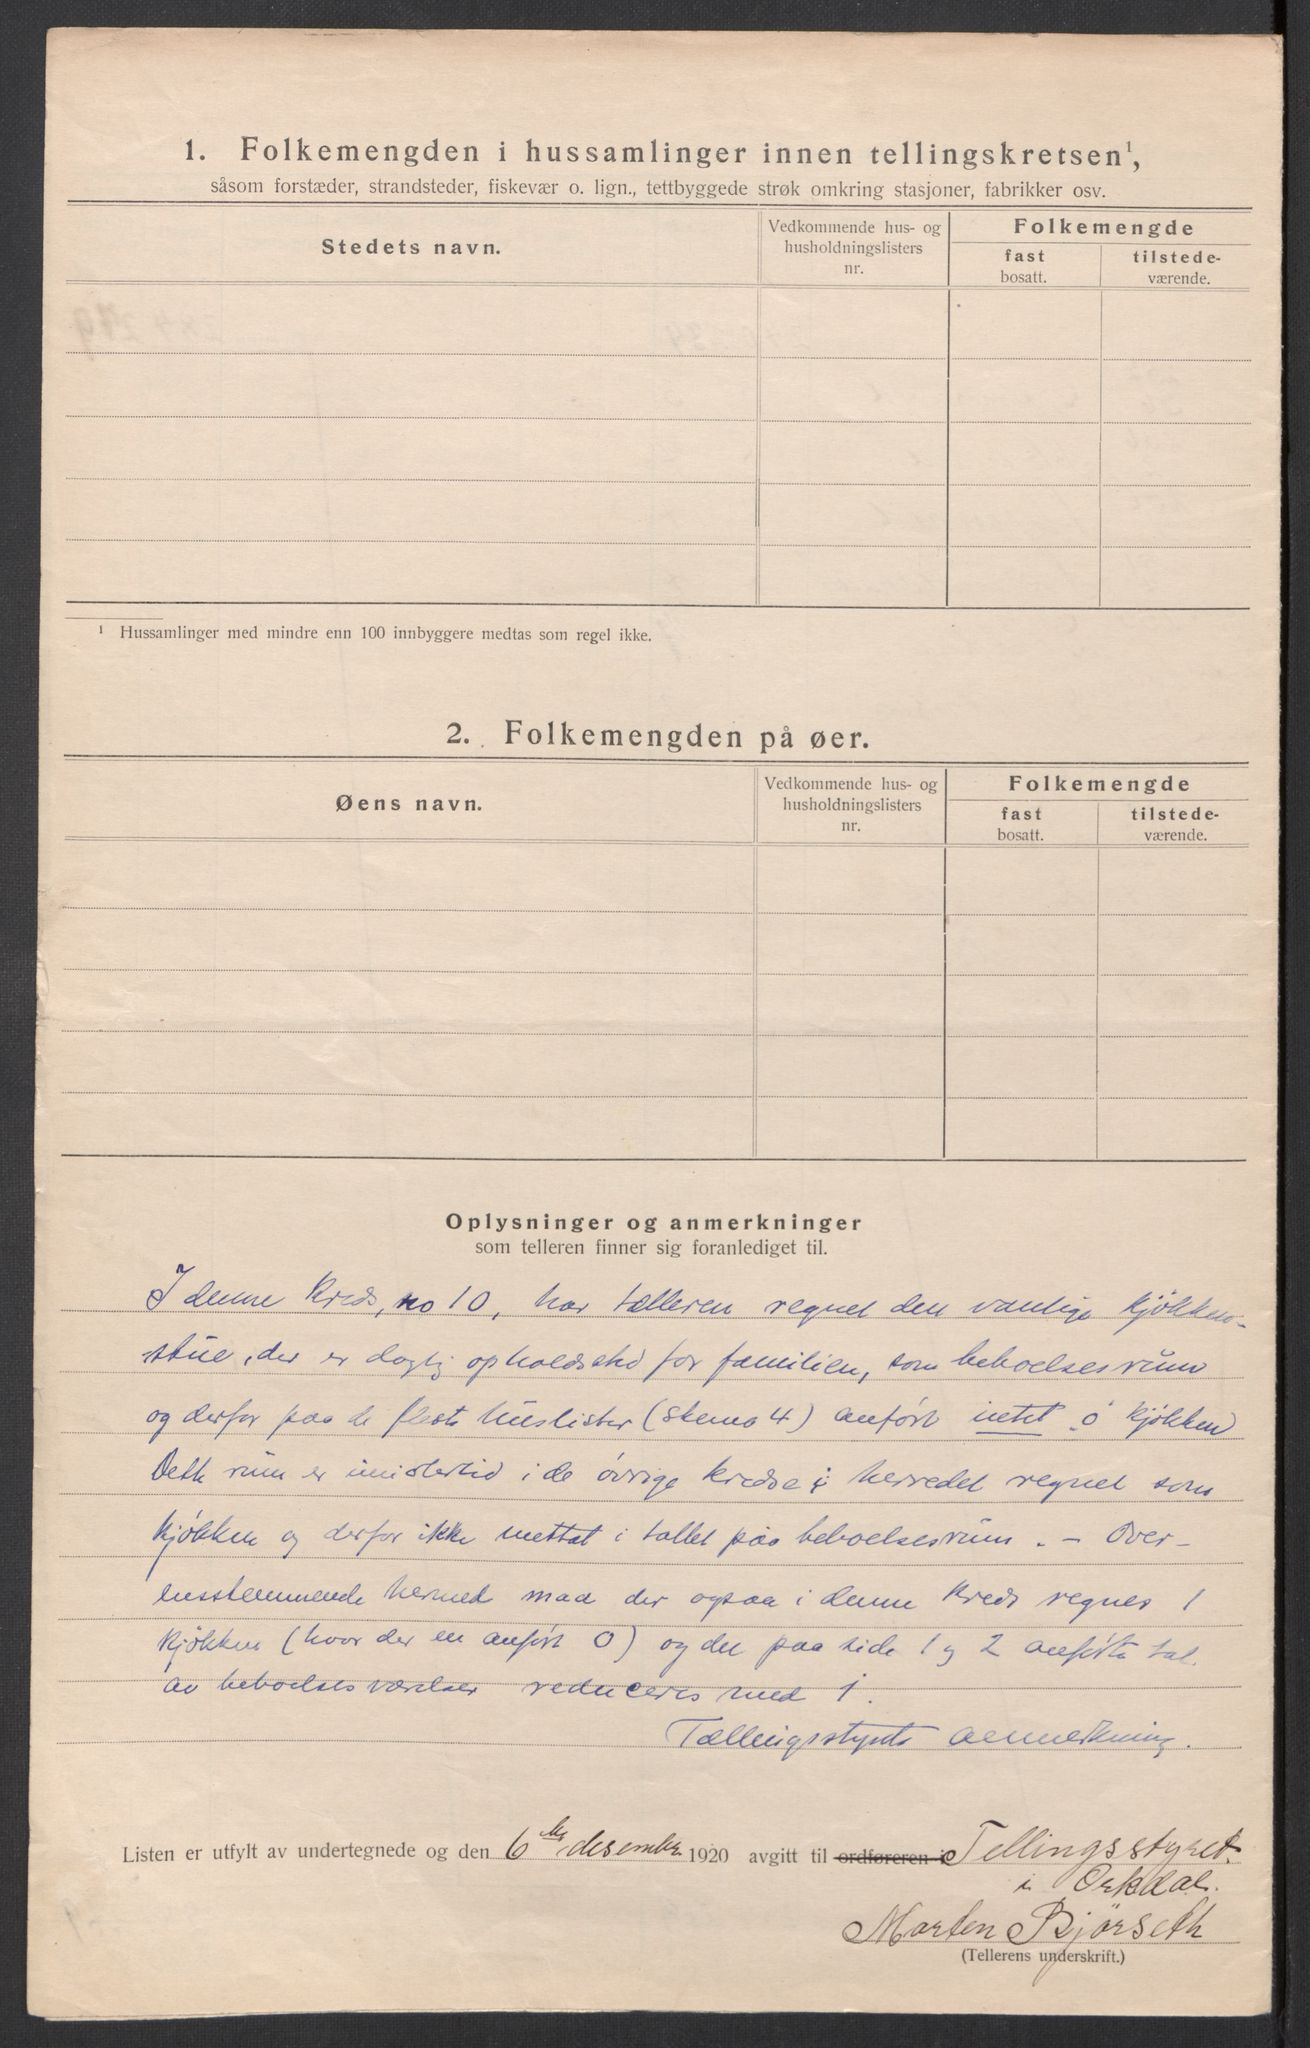 1. Folkemengden i hussamlinger innen tellingskretsen¹,
såsom forstæder, strandsteder, fiskevær o. lign., tettbyggede strøk omkring stasjoner, fabrikker osv.
Stedets navn.
Vedkommende hus- og
husholdningslisters
nr.
Folkemengde
fast
bosatt.
tilstede-
værende.
¹ Hussamlinger med mindre enn 100 innbyggere medtas som regel ikke.
2. Folkemengden på øer.
Øens navn.
Vedkommende hus- og
husholdningslisters
nr.
Folkemengde
fast
bosatt.
tilstede-
værende.
Oplysninger og anmerkninger
som telleren finner sig foranlediget til.
I denne kreds, no 10, har tælleren regnet den vanlige kjøkken-
stue, der er daglig opholdssted for familien, som beboelsesrum
og derfor paa de fleste huslister (skema 4) anført intet o kjøkken
Dette rum er imidlertid i de øvrige kredse i herredet regnet som
kjøkken og derfor ikke mettat i tallet paa beboelsesrum. - Over-
ensstemmende hermed maa der ogsaa i denne kreds regnes 1
kjøkken (hvor der en anført 0) og det paa side 1 og 2 anførte tal
av beboelsesværelser reduceres med 1.
Tællingsstyrets anmerkning.
Listen er utfylt av undertegnede og den 6te desember 1920 avgitt til ordføreren i Tellingsstyret
i Orkdal.
Marten Bjørseth
(Tellerens underskrift.)